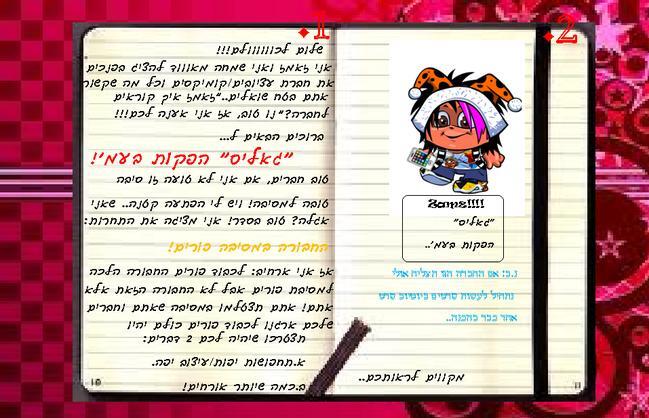 1
שלום לכווווולם!!!
אני זאמז ואני שמחה מאווווד להציג בפנכים
את חברת עציובים/קומיקסים וכל מה שקשור
אתם בטח שואלים.."זאמז איך קוראים
לחברה?" נו טוב, אז אני אענה לכם!!!
ברוכים הבאים ל...
"גאליס" הפקות בעמ'!
טוב חברים, אם אני לא טועה זו סיבה
טובה למסיבה! ויש לי הפתעה קטנה.. שאני
אגלה? טוב בסדר! אני מציגה את התחרות:
החבורה במסיבה פורים!
אז אני ארחיב: לכבוד פורים החבורה הלכה
למסיבת פורים אבל לא החבורה הזאת אלא
אתם! אתם תצטלמו במסיבה שאתם וחברים
שלכם ארגנו לכבוד פורים כולם יהיו
תצטרכו שיהיה לכם 2 דברים:
א.תחפושות יפות/עיצוב יפה.
ב.כמה שיותר אורחים!
10
2
Zams!!!!
"גאליס"
הפקות בעמ'..
נ.ב: אם החברה הזו תצליח אולי
נתחיל לעשות סרטים ביוטיוב סרט
אחד כבר בהכנה..
מקווים לראותכם..
11